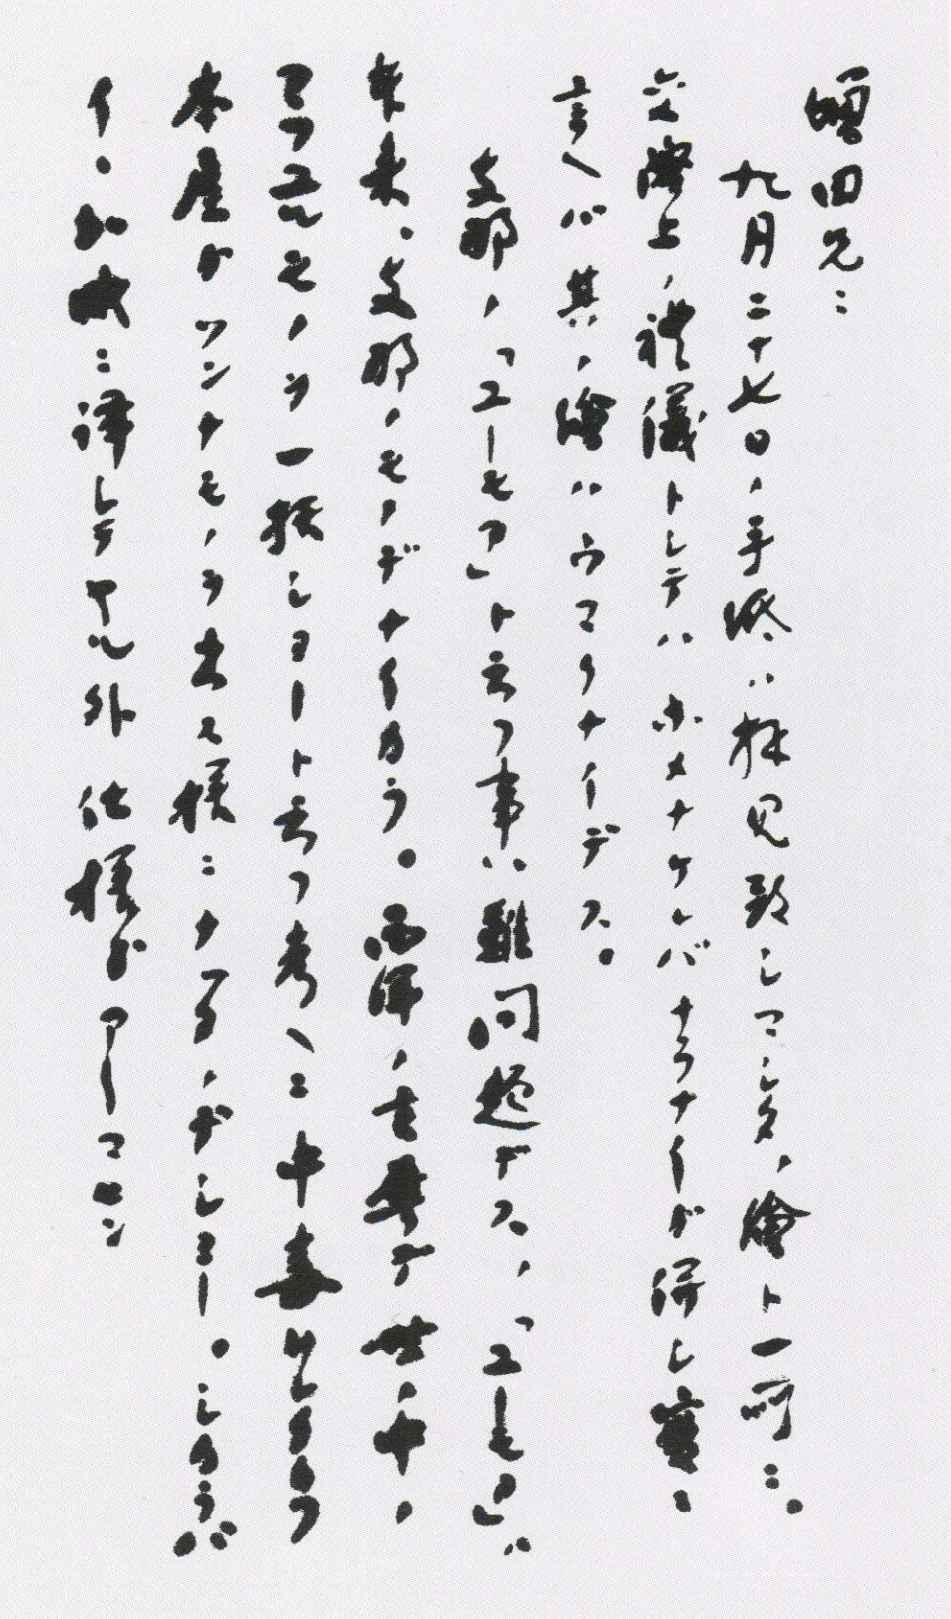 増田兄:
九月二十七日ノ手紙ハ拝見致シマシタ、繪ト一所ニ。
交際上ノ禮儀トシテハホメナケレバナラナイガ併し實ニ
言ヘバ其ノ繪ハウマクナイデス。
支那ノ「ユーモア」ト云フ事ハ難問題デス、「ユーモア」ハ
本來、支那ノモノデナイカラ。西洋ノ言葉デ世ノ中ノ
アラユルモノヲ一括ショート云フ考ヘニ中毒サレタカラ
本屋ガソンナモノヲ出ス様ニナッタノデショー。シカラバ
イヽ加減ニ譯シテヤル外仕様ガアリマセン